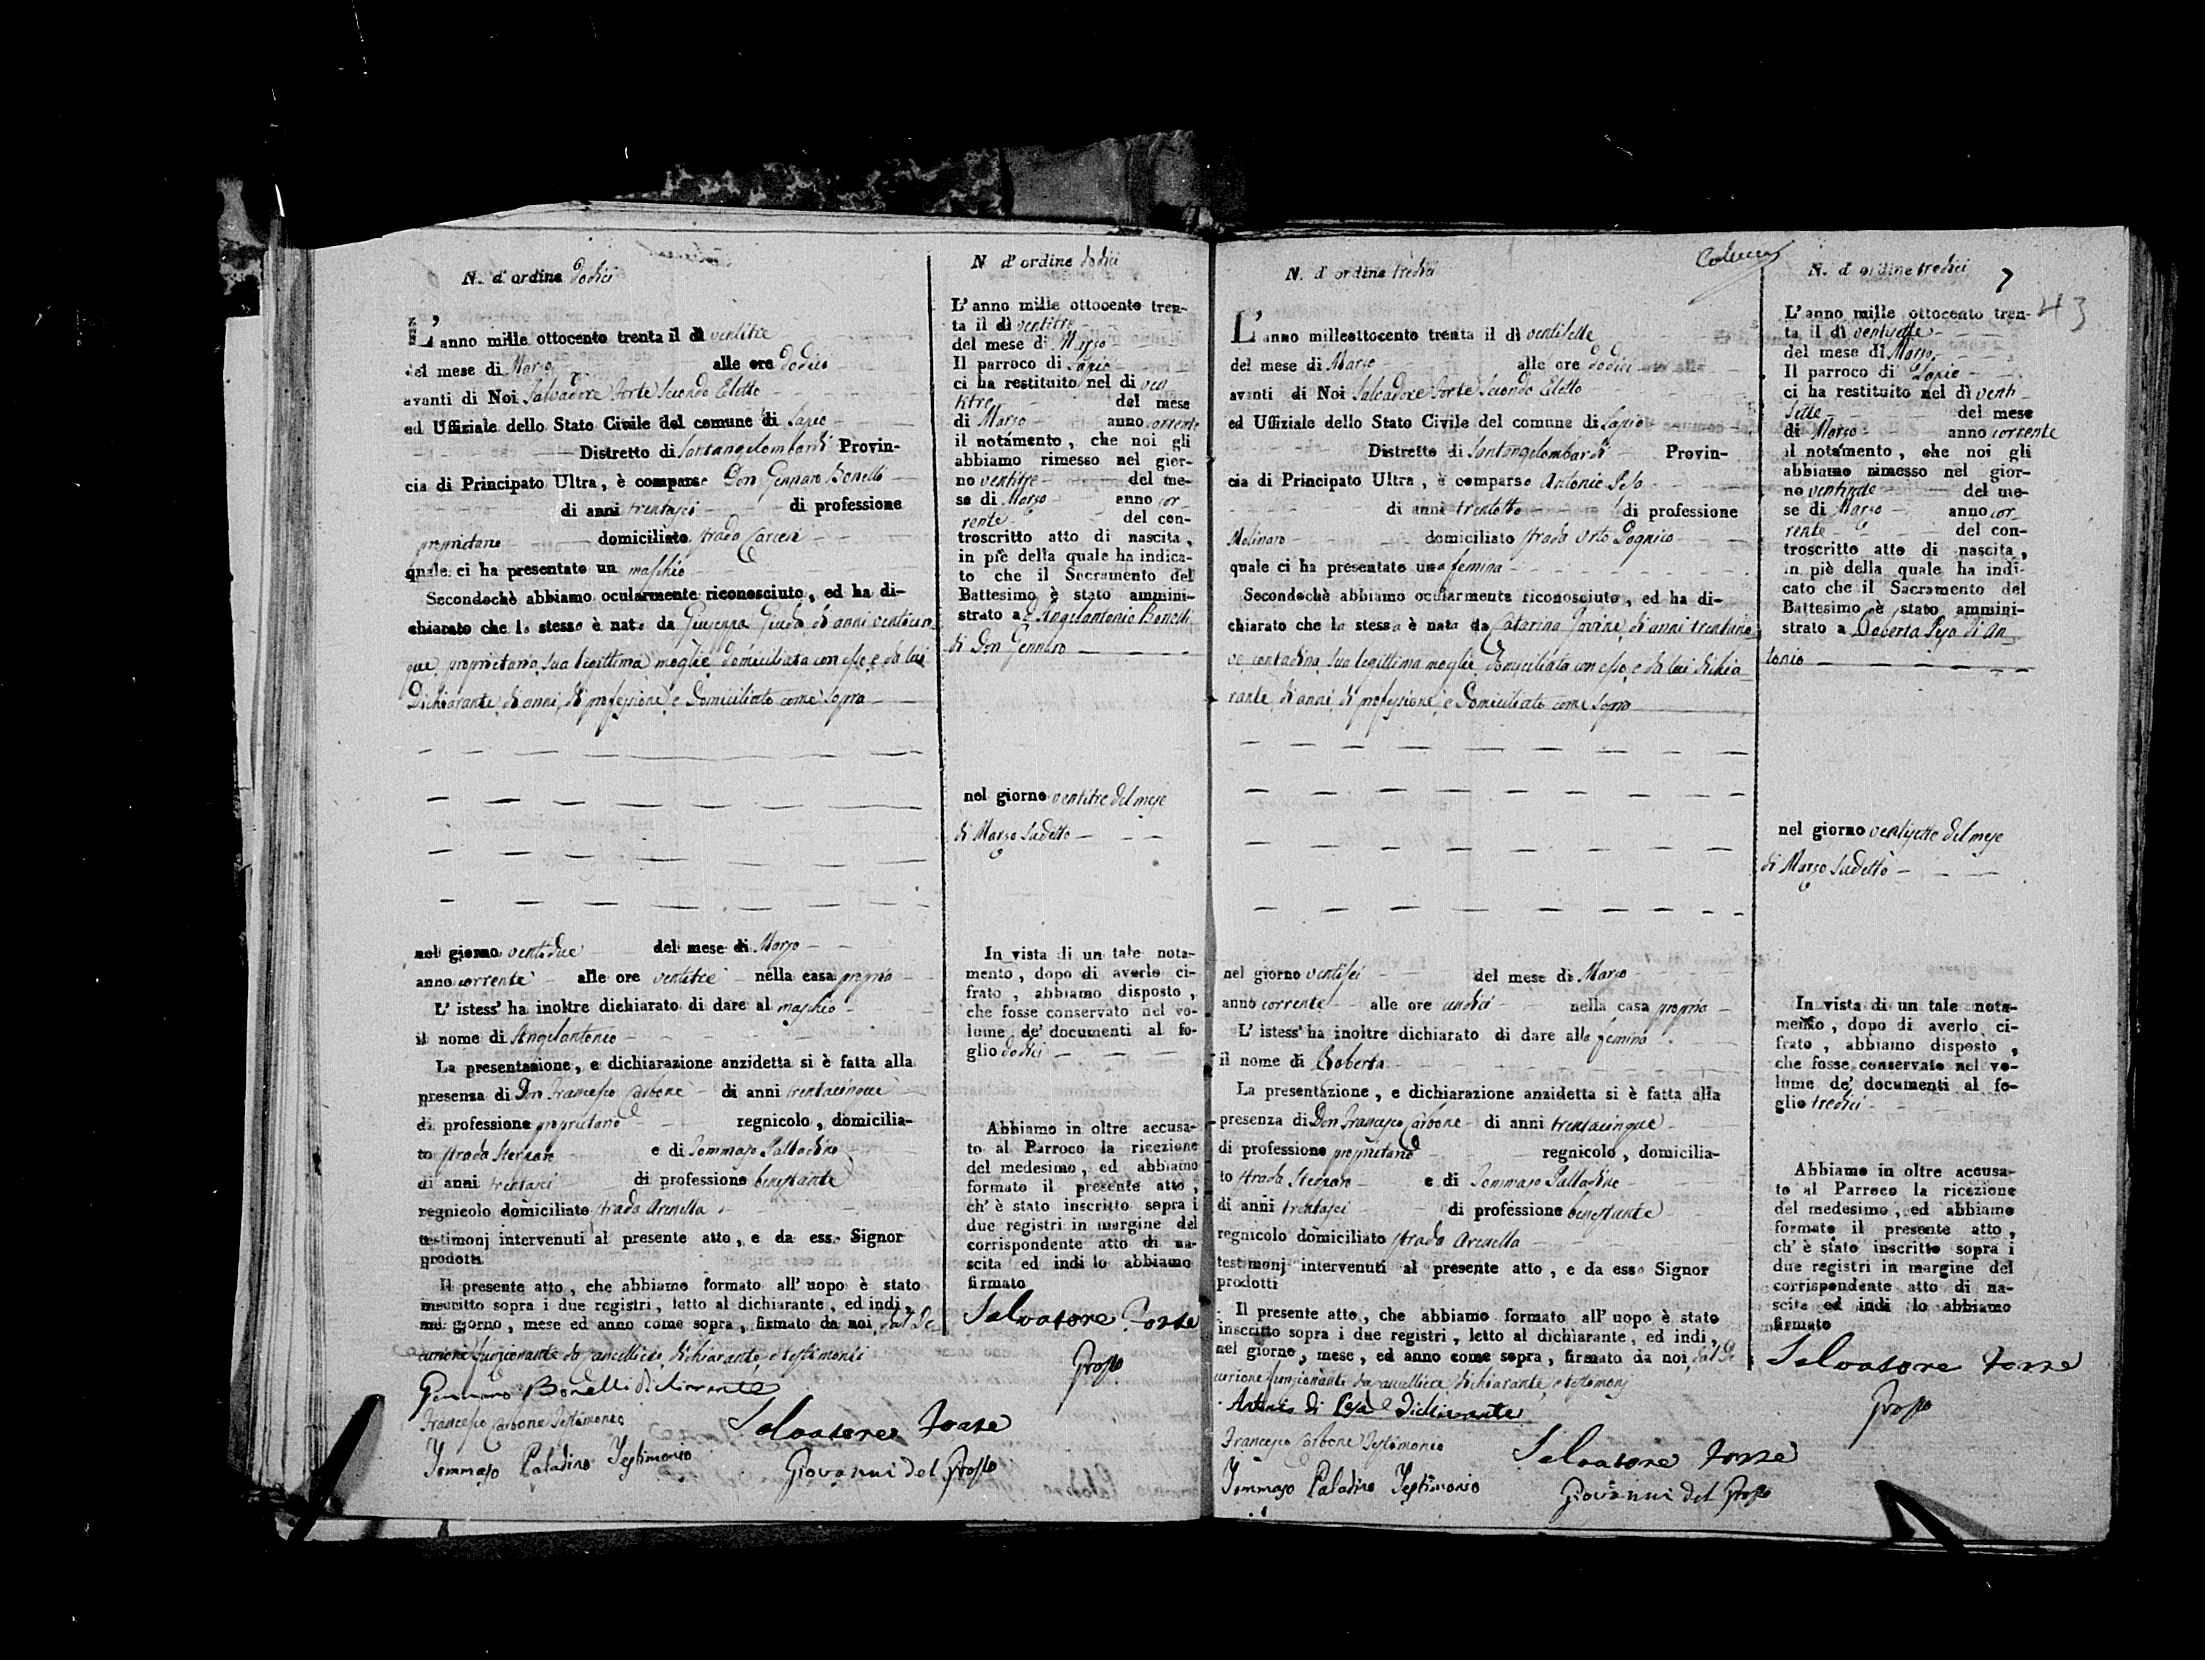 N. d'ordine dodici
L'anno mille ottocento trenta il dì ventitre
del mese di Marzo alle ore dodici
avanti di Noi Salvadore Forte Secondo Eletto
ed Uffiziale dello Stato Civile del comune di Lapio
Distretto di Santangelombardi Provin-
cia di Principato Ultra, è comparso Don Gennaro Bonelli
di anni trentasei di professione
proprietario domiciliato strada Carceri
quale ci ha presentato un maschio
Secondochè abbiamo ocularmente riconosciuto, ed ha di-
chiarato che lo stesso è nato da Giuseppa di anni venticin
que proprietaria sua legittima moglie domiciliata con esso e da lui
Dichiarante di anni, di professione e Domiciliato come sopra
nel giorno ventidue del mese di Marzo
anno corrente alle ore ventitre nella casa propria
L'istess' ha inoltre dichiarato di dare al maschio
il nome di Angelantonio
La presentazione, e dichiarazione anzidetta si è fatta alla
presenza di Don Francesco Carbone di anni trentacinque
di professione proprietario regnicolo, domicilia-
to strada e di Tommaso Palladino
di anni trentasei di professione benestante
regnicolo domiciliato strada Arenella
testimonj intervenuti al presente atto, e da esso Signor
prodotti
Il presente atto, che abbiamo formato all' uopo è stato
inscritto sopra i due registri, letto al dichiarante, ed indi,
nel giorno, mese ed anno come sopra, firmato da noi, dal De
curione funzionante da cancelliere, dichiarante, e testimonii
Gennaro Bonelli dichiarante
Francesco Carbone Testimonio
Tommaso Paladino Testimonio
Salvatore Forte
Giovanni del Grosso
N d'ordine dodici
L'anno mille ottocento tren-
ta il dì ventitre
del mese di Marzo
Il parroco di Lapio
ci ha restituito nel di ven
titre del mese
di Marzo anno corrente
il notamento, che noi gli
abbiamo rimesso nel gior-
no ventitre del me-
se di Marzo anno cor
rente del con-
troscritto atto di nascita,
in piè della quale ha indica-
to che il Sacramento del
Battesimo è stato ammini-
strato a Angelantonio Bonelli
di Don Gennaro
nel giorno ventitre del mese
di Marzo sudetto
In vista di un tale nota-
mento, dopo di averlo ci-
frato, abbiamo disposto,
che fosse conservato nel vo-
lume de' documenti al fo-
glio dodici
Abbiamo in oltre accusa-
to al Parroco la ricezione
del medesimo, ed abbiamo
formato il presente atto,
ch'è stato inscritto sopra i
due registri in margine del
corrispondente atto di na-
scita ed indi lo abbiamo
firmato
Salvatore Forte
Grosso
N. d'ordine tredici
L'anno milleottocento trenta il dì ventisette
del mese di Marzo alle ore dodici
avanti di Noi Salvadore Forte Secondo Eletto
ed Uffiziale dello Stato Civile del comune di Lapio
Distretto di Santangelombardi Provin-
cia di Principato Ultra, è comparso Antonio
di anni trentotto di professione
Molinaro domiciliato strada Orto
quale ci ha presentato una femina
Secondochè abbiamo ocularmente riconosciuto, ed ha di-
chiarato che la stessa è nata da Catarina Iovine di anni trentano
ve contadina sua legittima moglie domiciliata con esso e da lui dichia
rante di anni, di professione e Domiciliato come sopra
nel giorno ventisei del mese di Marzo
anno corrente alle ore undici nella casa propria
L'istess' ha inoltre dichiarato di dare alla femina
il nome di Roberta
La presentazione, e dichiarazione anzidetta si è fatta alla
presenza di Don Francesco Carbone di anni trentacinque
di professione proprietario regnicolo, domicilia-
to strada e di Tommaso Palladino
di anni trentasei di professione benestante
regnicolo domiciliato strada Arenella
testimonj intervenuti al presente atto, e da esso Signor
prodotti
Il presente atto, che abbiamo formato all' uopo è stato
inscritto sopra i due registri, letto al dichiarante, ed indi,
nel giorno, mese, ed anno come sopra, firmato da noi, dal De
curione funzionante da cancelliere dichiarante e testimonj
Antonio di dichiarante
Francesco Carbone Testimonio
Tommaso Paladino Testimonio
Salvatore Forte
Giovanni del Grosso
N. d'ordine tredici
7
43
L'anno mille ottocento tren-
ta il dì ventisette
del mese di Marzo
Il parroco di Lapio
ci ha restituito nel dì venti
sette del mese
di Marzo anno corrente
il notamento, che noi gli
abbiamo rimesso nel gior-
no ventisette del me-
se di Marzo anno cor
rente del con-
troscritto atto di nascita,
in piè della quale ha indi-
cato che il Sacramento del
Battesimo è stato ammini-
strato a Roberta di An
tonio
nel giorno ventisette del mese
di Marzo sudetto
In vista di un tale nota-
mento, dopo di averlo ci-
frato, abbiamo disposto,
che fosse conservato nel vo-
lume de' documenti al fo-
glio tredici
Abbiamo in oltre accusa-
to al Parroco la ricezione
del medesimo, ed abbiamo
formato il presente atto,
ch'è stato inscritto sopra i
due registri in margine del
corrispondente atto di na-
scita ed indi lo abbiamo
firmato
Salvatore Forte
Grosso